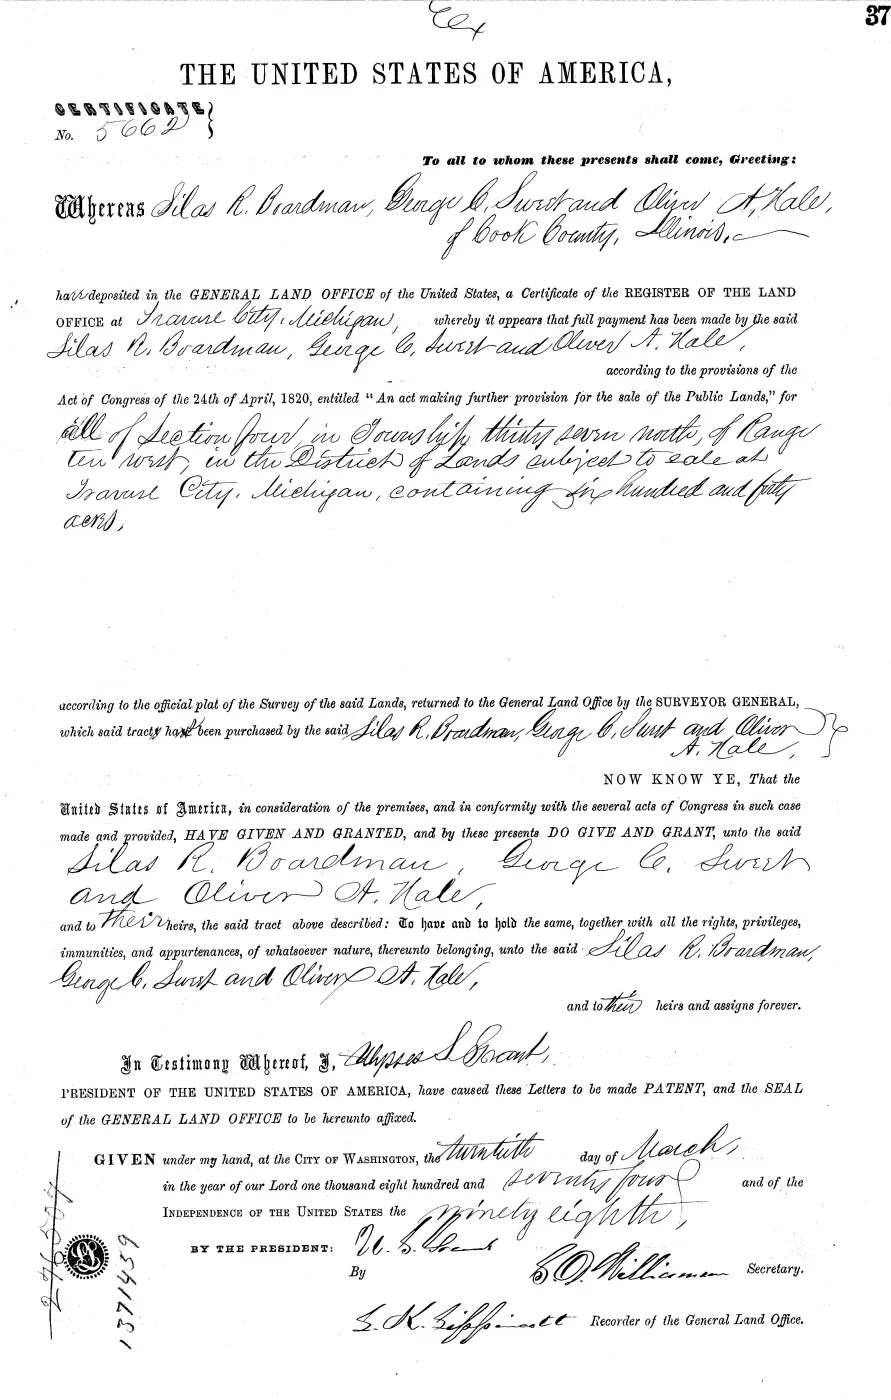 37
Ex
THE UNITED STATES OF AMERICA,
CERTIFICATE
No. 5662
To all to whom these presents shall come, Greeting:
Whereas Silas R. Boardman, George C. Swest and Oliver A. Hale,
of Cook County, Illinois,
have deposited in the GENERAL LAND OFFICE of the United States, a Certificate of the REGISTER OF THE LAND
OFFICE at Traverse City, Michigan, whereby it appears that full payment has been made by the said
Silas R. Boardman, George C. Swest and Oliver A. Hale,
according to the provisions of the
Act of Congress of the 24th of April, 1820, entitled "An act making further provision for the sale of the Public Lands," for
all of Section four, in Township thirty seven north, of Range
ten west, in the District of Lands subject to sale at
Traverse City, Michigan, containing six hundred and forty
acres,
according to the official plat of the Survey of the said Lands, returned to the General Land Office by the SURVEYOR GENERAL,
which said tract has been purchased by the said Silas R. Boardman, George C. Swest and Oliver
A. Hale,
NOW KNOW YE, That the
United States of America, in consideration of the premises, and in conformity with the several acts of Congress in such case
made and provided, HAVE GIVEN AND GRANTED, and by these presents DO GIVE AND GRANT, unto the said
Silas R. Boardman, George C. Swest
and Oliver A. Hale,
and to their heirs, the said tract above described: To have and to hold the same, together with all the rights, privileges,
immunities, and appurtenances, of whatsoever nature, thereunto belonging, unto the said Silas R. Boardman,
George C. Swest and Oliver A. Hale,
and to their heirs and assigns forever.
In Testimony Whereof, I, Ulysses S. Grant,
PRESIDENT OF THE UNITED STATES OF AMERICA, have caused these Letters to be made PATENT, and the SEAL
of the GENERAL LAND OFFICE to be hereunto affixed.
GIVEN under my hand, at the CITY OF WASHINGTON, the twentieth day of March,
in the year of our Lord one thousand eight hundred and seventy four and of the
INDEPENDENCE OF THE UNITED STATES the ninety eighth,
BY THE PRESIDENT: U. S. Grant
By S. D. Williamson Secretary.
L. K. Lippincott Recorder of the General Land Office.
1371459